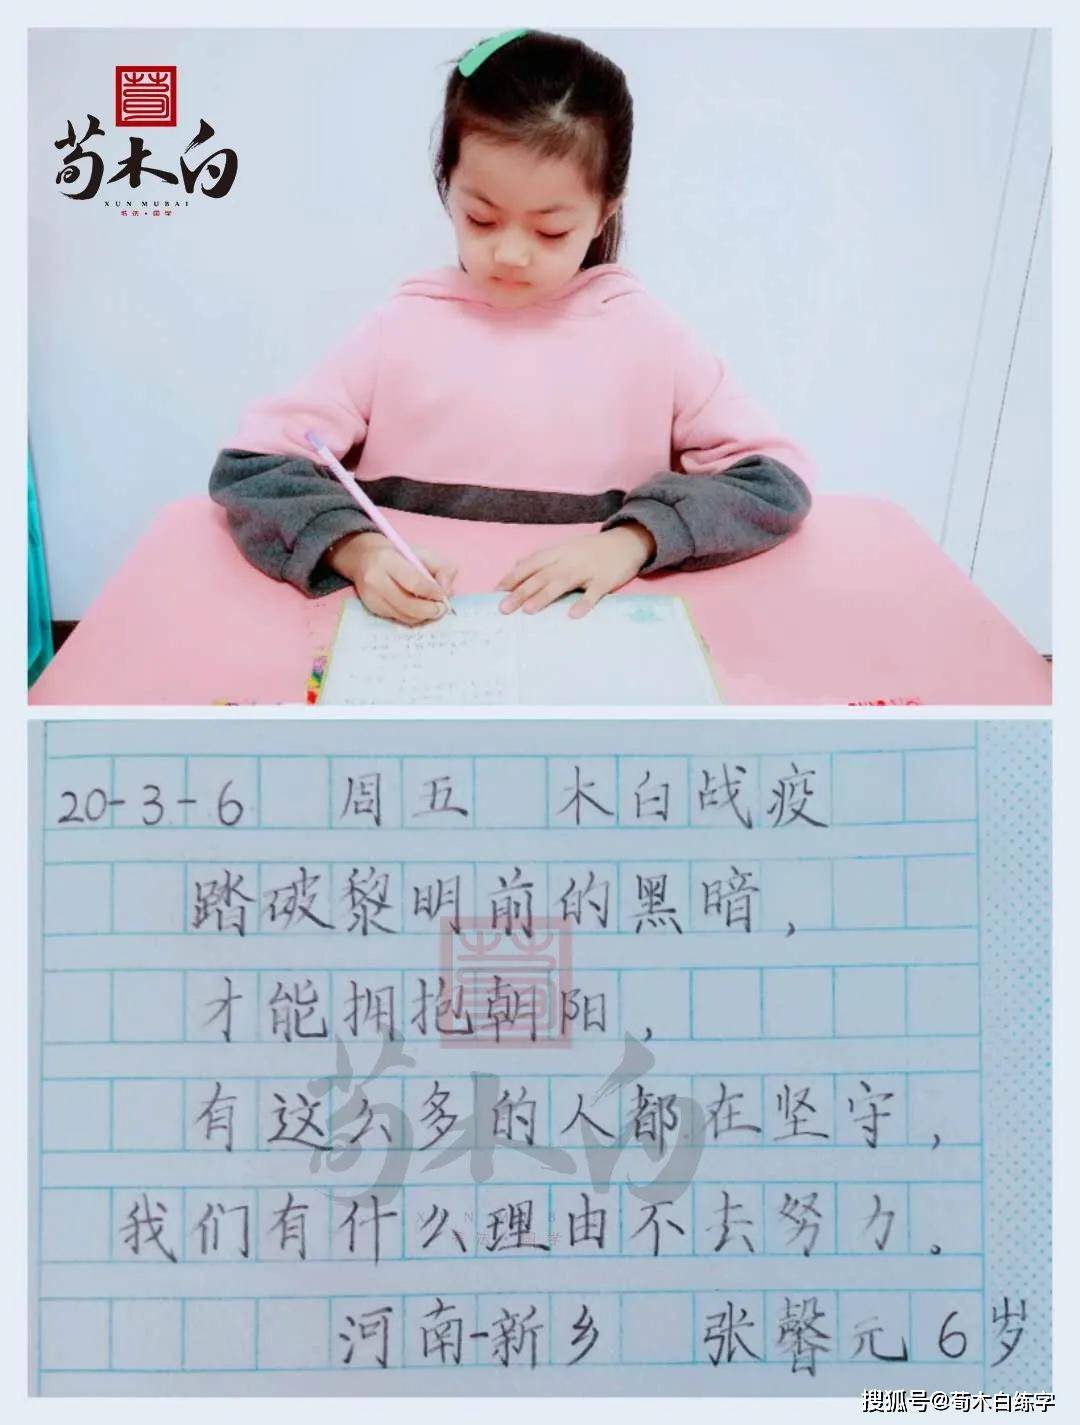 荀木白
XUN MUBAI
书法·国学
20-3-6 周五 木白战疫
踏破黎明前的黑暗，
才能拥抱朝阳，
有这么多的人都在坚守，
我们有什么理由不去努力。
河南-新乡 张馨元 6岁
荀木白
搜狐号@荀木白练字